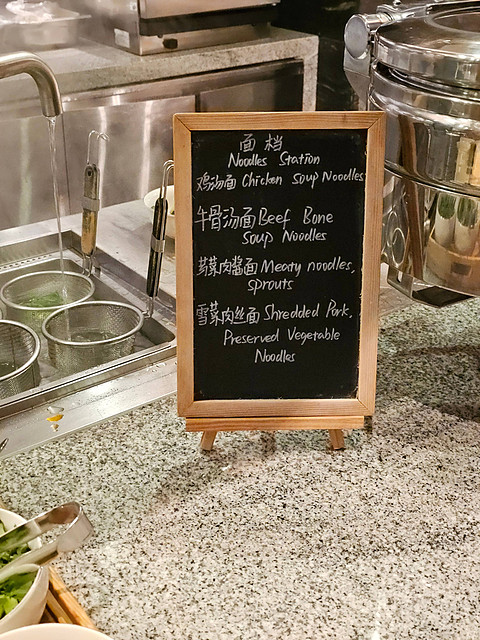 面档
Noodles Station
鸡汤面 Chicken Soup Noodles
牛骨汤面 Beef Bone
Soup Noodles
菜肉酱面 Meaty noodles,
sprouts
雪菜肉丝面 Shredded Pork,
Preserved Vegetable
Noodles